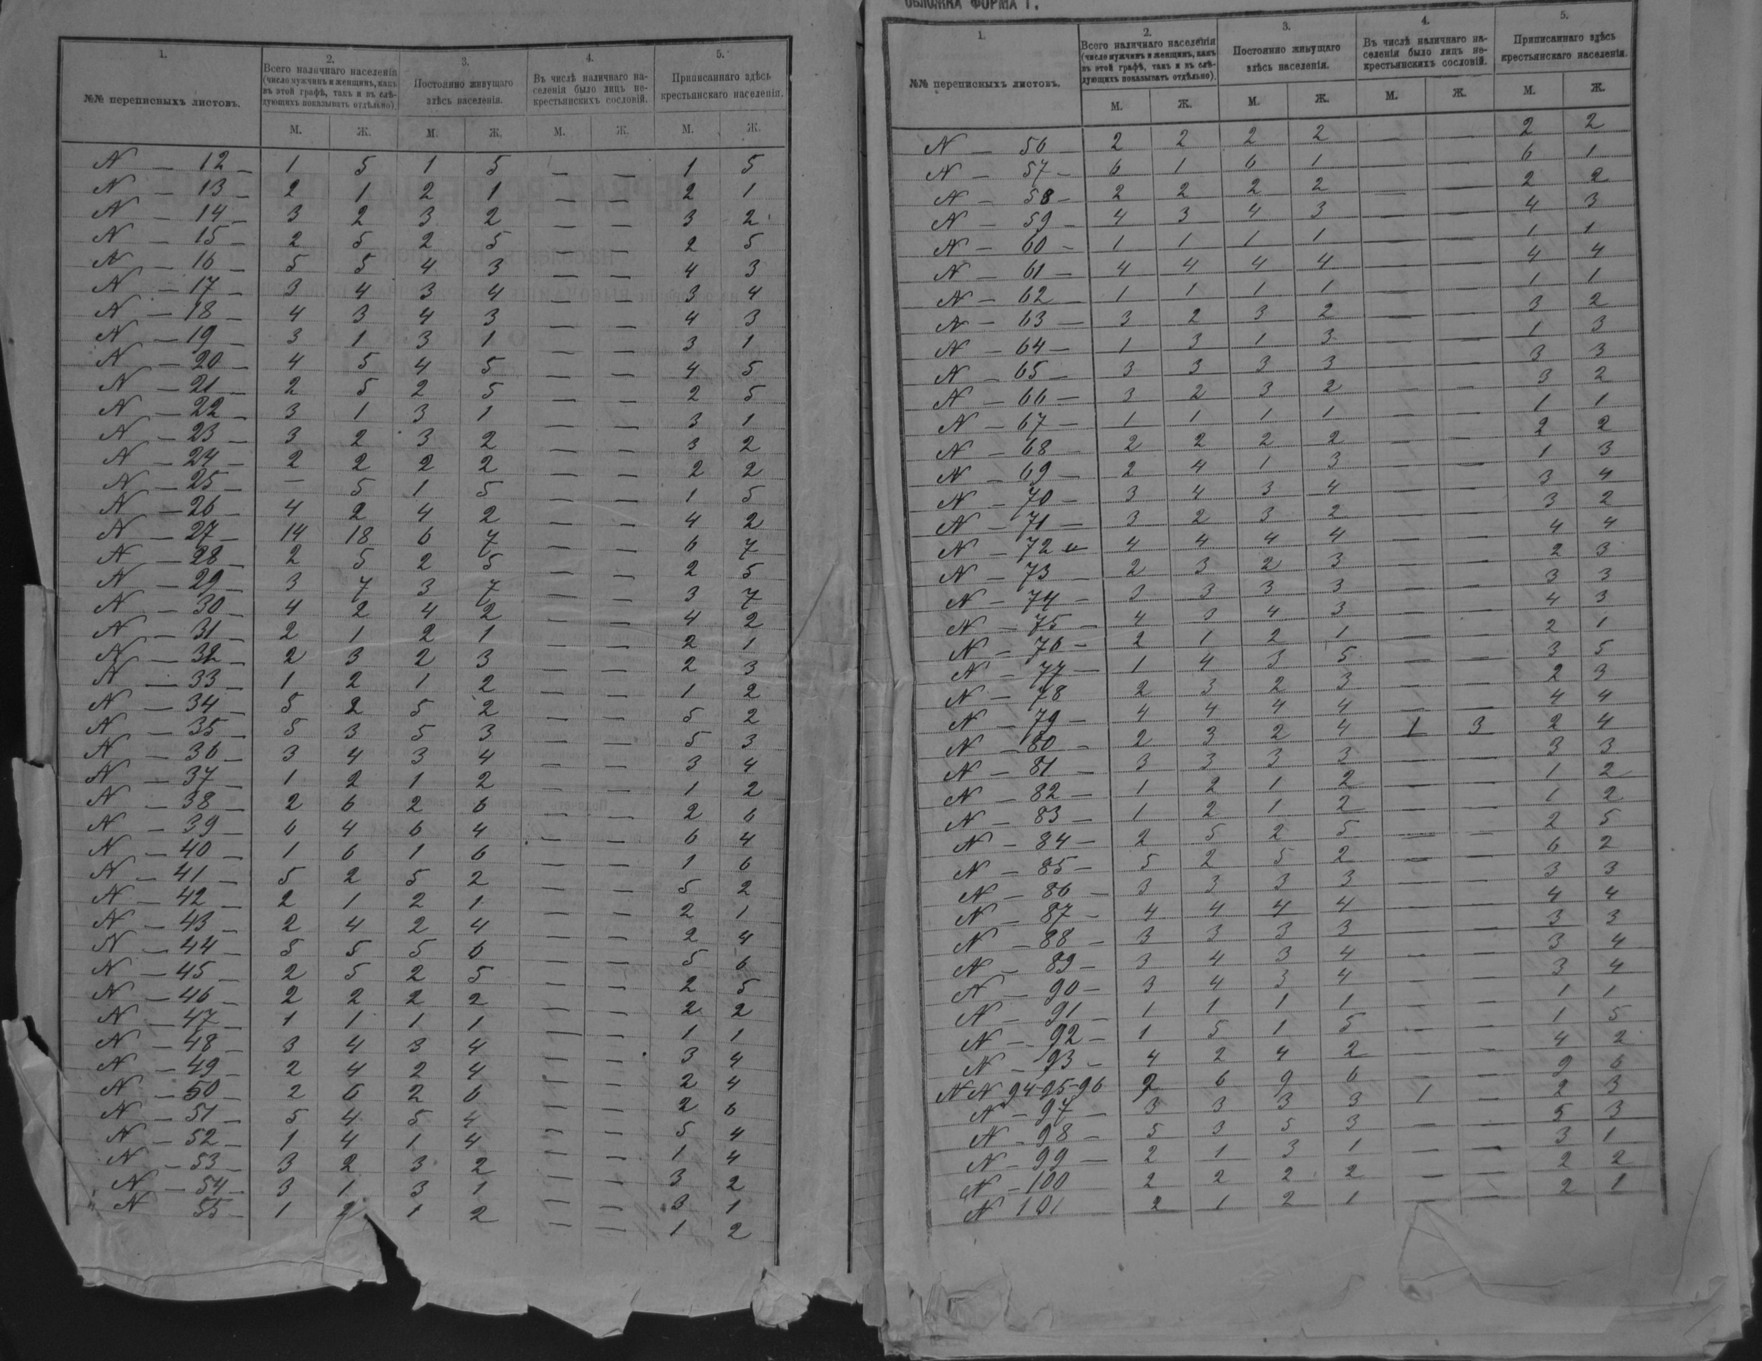 1. 2. 3. 4. 5.
№№ переписныхъ листовъ. Всего наличнаго населенія (число мужчинъ и женщинъ, какъ въ этой графѣ, такъ и въ слѣдующихъ показывать отдѣльно). Постоянно живущаго здѣсь населенія. Въ числѣ наличнаго населенія было лицъ некрестьянскихъ сословій. Приписаннаго здѣсь крестьянскаго населенія.
М. Ж. М. Ж. М. Ж. М. Ж.
N — 12 — 1 5 1 5 — — 1 5
N — 13 — 2 1 2 1 — — 2 1
N — 14 — 3 2 3 2 — — 3 2
N — 15 — 2 5 2 5 — — 2 5
N — 16 — 5 5 4 3 — — 4 3
N — 17 — 3 4 3 4 — — 3 4
N — 18 — 4 3 4 3 — — 4 3
N — 19 — 3 1 3 1 — — 3 1
N — 20 — 4 5 4 5 — — 4 5
N — 21 — 2 5 2 5 — — 2 5
N — 22 — 3 1 3 1 — — 3 1
N — 23 — 3 2 3 2 — — 3 2
N — 24 — 2 2 2 2 — — 2 2
N — 25 — — 5 1 5 — — 1 5
N — 26 — 4 2 4 2 — — 4 2
N — 27 — 14 18 6 7 — — 6 7
N — 28 — 2 5 2 5 — — 2 5
N — 29 — 3 7 3 7 — — 3 7
N — 30 — 4 2 4 2 — — 4 2
N — 31 — 2 1 2 1 — — 2 1
N — 32 — 2 3 2 3 — — 2 3
N — 33 — 1 2 1 2 — — 1 2
N — 34 — 5 2 5 2 — — 5 2
N — 35 — 5 3 5 3 — — 5 3
N — 36 — 3 4 3 4 — — 3 4
N — 37 — 1 2 1 2 — — 1 2
N — 38 — 2 6 2 6 — — 2 6
N — 39 — 6 4 6 4 — — 6 4
N — 40 — 1 6 1 6 — — 1 6
N — 41 — 5 2 5 2 — — 5 2
N — 42 — 2 1 2 1 — — 2 1
N — 43 — 2 4 2 4 — — 2 4
N — 44 — 5 5 5 6 — — 5 6
N — 45 — 2 5 2 5 — — 2 5
N — 46 — 2 2 2 2 — — 2 2
N — 47 — 1 1 1 1 — — 1 1
N — 48 — 3 4 3 4 — — 3 4
N — 49 — 2 4 2 4 — — 2 4
N — 50 — 2 6 2 6 — — 2 6
N — 51 — 5 4 5 4 — — 5 4
N — 52 — 1 4 1 4 — — 1 4
N — 53 — 3 2 3 2 — — 3 2
N — 54 — 3 1 3 1 — — 3 1
N 55 — 1 2 1 2 — — 1 2
ОБЛОЖКА ФОРМА Г.
1. 2. 3. 4. 5.
№№ переписныхъ листовъ. Всего наличнаго населенія (число мужчинъ и женщинъ, какъ въ этой графѣ, такъ и въ слѣдующихъ показывать отдѣльно). Постоянно живущаго здѣсь населенія. Въ числѣ наличнаго населенія было лицъ некрестьянскихъ сословій. Приписаннаго здѣсь крестьянскаго населенія.
М. Ж. М. Ж. М. Ж. М. Ж.
N — 56 2 2 2 2 — — 2 2
N — 57 — 6 1 6 1 — — 6 1
N — 58 — 2 2 2 2 — — 2 2
N — 59 — 4 3 4 3 — — 4 3
N — 60 — 1 1 1 1 — — 1 1
N — 61 — 4 4 4 4 — — 4 4
N — 62 — 1 1 1 1 — — 1 1
N — 63 — 3 2 3 2 — — 3 2
N — 64 — 1 3 1 3 — — 1 3
N — 65 — 3 3 3 3 — — 3 3
N — 66 — 3 2 3 2 — — 3 2
N — 67 — 1 1 1 1 — — 1 1
N — 68 — 2 2 2 2 — — 2 2
N — 69 — 2 4 1 3 — — 1 3
N — 70 — 3 4 3 4 — — 3 4
N — 71 — 3 2 3 2 — — 3 2
N — 72 4 4 4 4 — — 4 4
N — 73 2 3 2 3 — — 2 3
N — 74 — 3 3 3 3 — — 3 3
N — 75 — 4 3 4 3 — — 4 3
N — 76 — 2 1 2 1 — — 2 1
N — 77 — 1 4 3 5 — — 3 5
N — 78 2 3 2 3 — — 2 3
N — 79 — 4 4 4 4 — — 4 4
N — 80 — 2 3 2 4 1 3 2 4
N — 81 — 3 3 3 3 — — 3 3
N — 82 — 1 2 1 2 — — 1 2
N — 83 — 1 2 1 2 — — 1 2
N — 84 — 2 5 2 5 — — 2 5
N — 85 — 5 2 5 2 — — 6 2
N — 86 — 3 3 3 3 — — 3 3
N — 87 — 4 4 4 4 — — 4 4
N — 88 — 3 3 3 3 — — 3 3
N — 89 — 3 4 3 4 — — 3 4
N — 90 — 3 4 3 4 — — 3 4
N — 91 1 1 1 1 — — 1 1
N — 92 — 1 5 1 5 — — 1 5
N — 93 — 4 2 4 2 — — 4 2
NN 94-95-96 9 6 9 6 — — 9 6
N — 97 — 3 3 3 3 1 — 2 3
N — 98 — 5 3 5 3 — — 5 3
N — 99 — 2 1 3 1 — — 3 1
N — 100 2 2 2 2 — — 2 2
N 101 2 1 2 1 — — 2 1